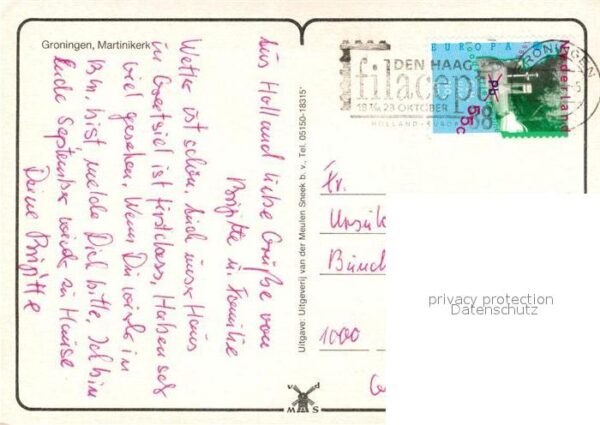 Groningen, Martinikerk
aus Holland liebe Grüße von
Brigitte u. Familie
Wetter ist schön, auch unser Haus
in Greetsiel ist first class, Haben schon
viel gesehen. Wenn Du wieder in
Bln. bist melde Dich bitte. Ich bin
Ende September wieder zu Hause
Deine Brigitte
Uitgave: Uitgeverij van der Meulen Sneek b. v., Tel. 05150-18315*
DEN HAAG
filacept
18 23 OKTOBER
88
HOLLAND EUROPA
EUROPA
Nederland
Pb
55c
GRONINGEN
Fr.
1000
privacy protection
Datenschutz
v d
SAM